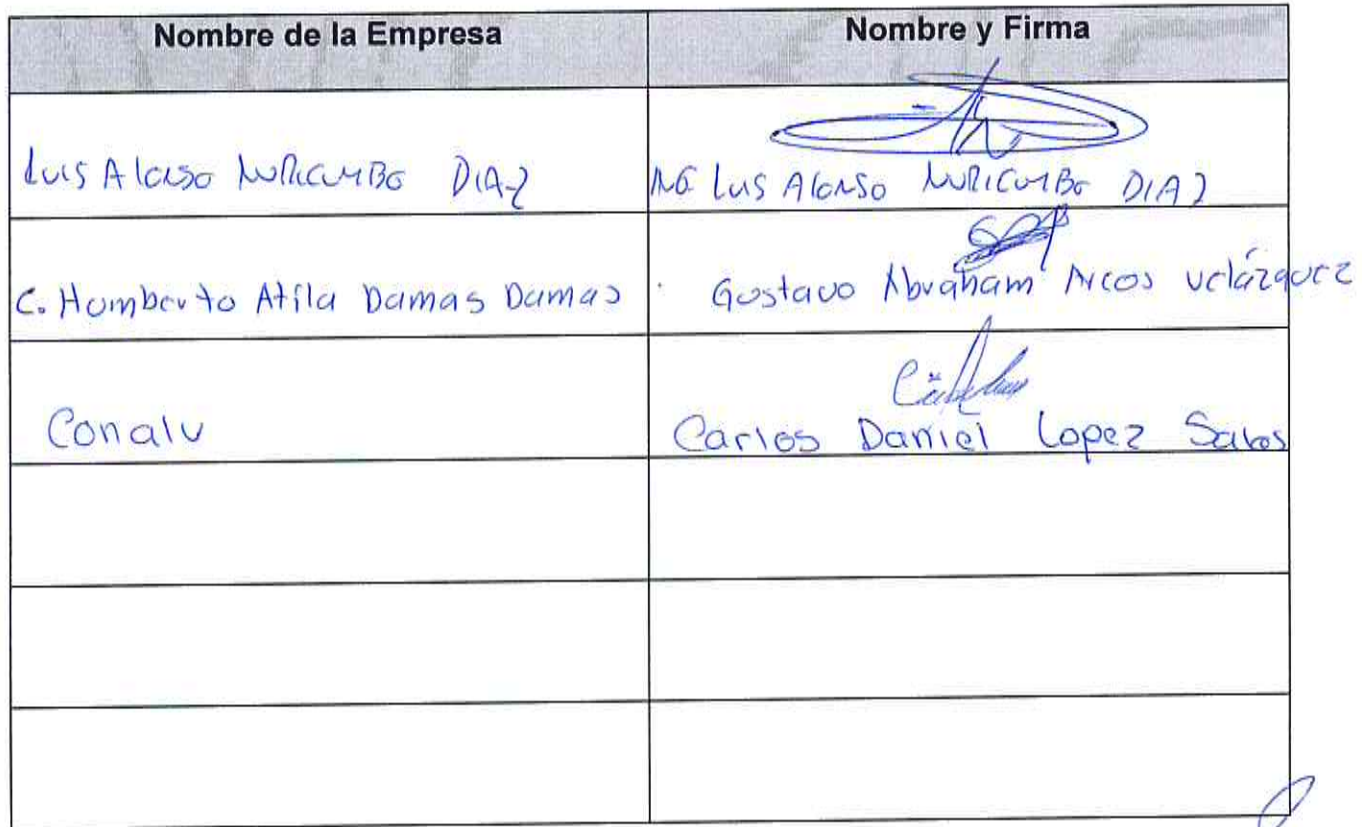 Nombre de la Empresa Nombre y Firma
Luis Alonso Nuricumbo DIAZ ING LUIS Alonso Nuricumbo DIAZ
C. Humberto Atila Damas Damas Gustavo Abraham Arcos Velázquez
Conalu Carlos Daniel Lopez